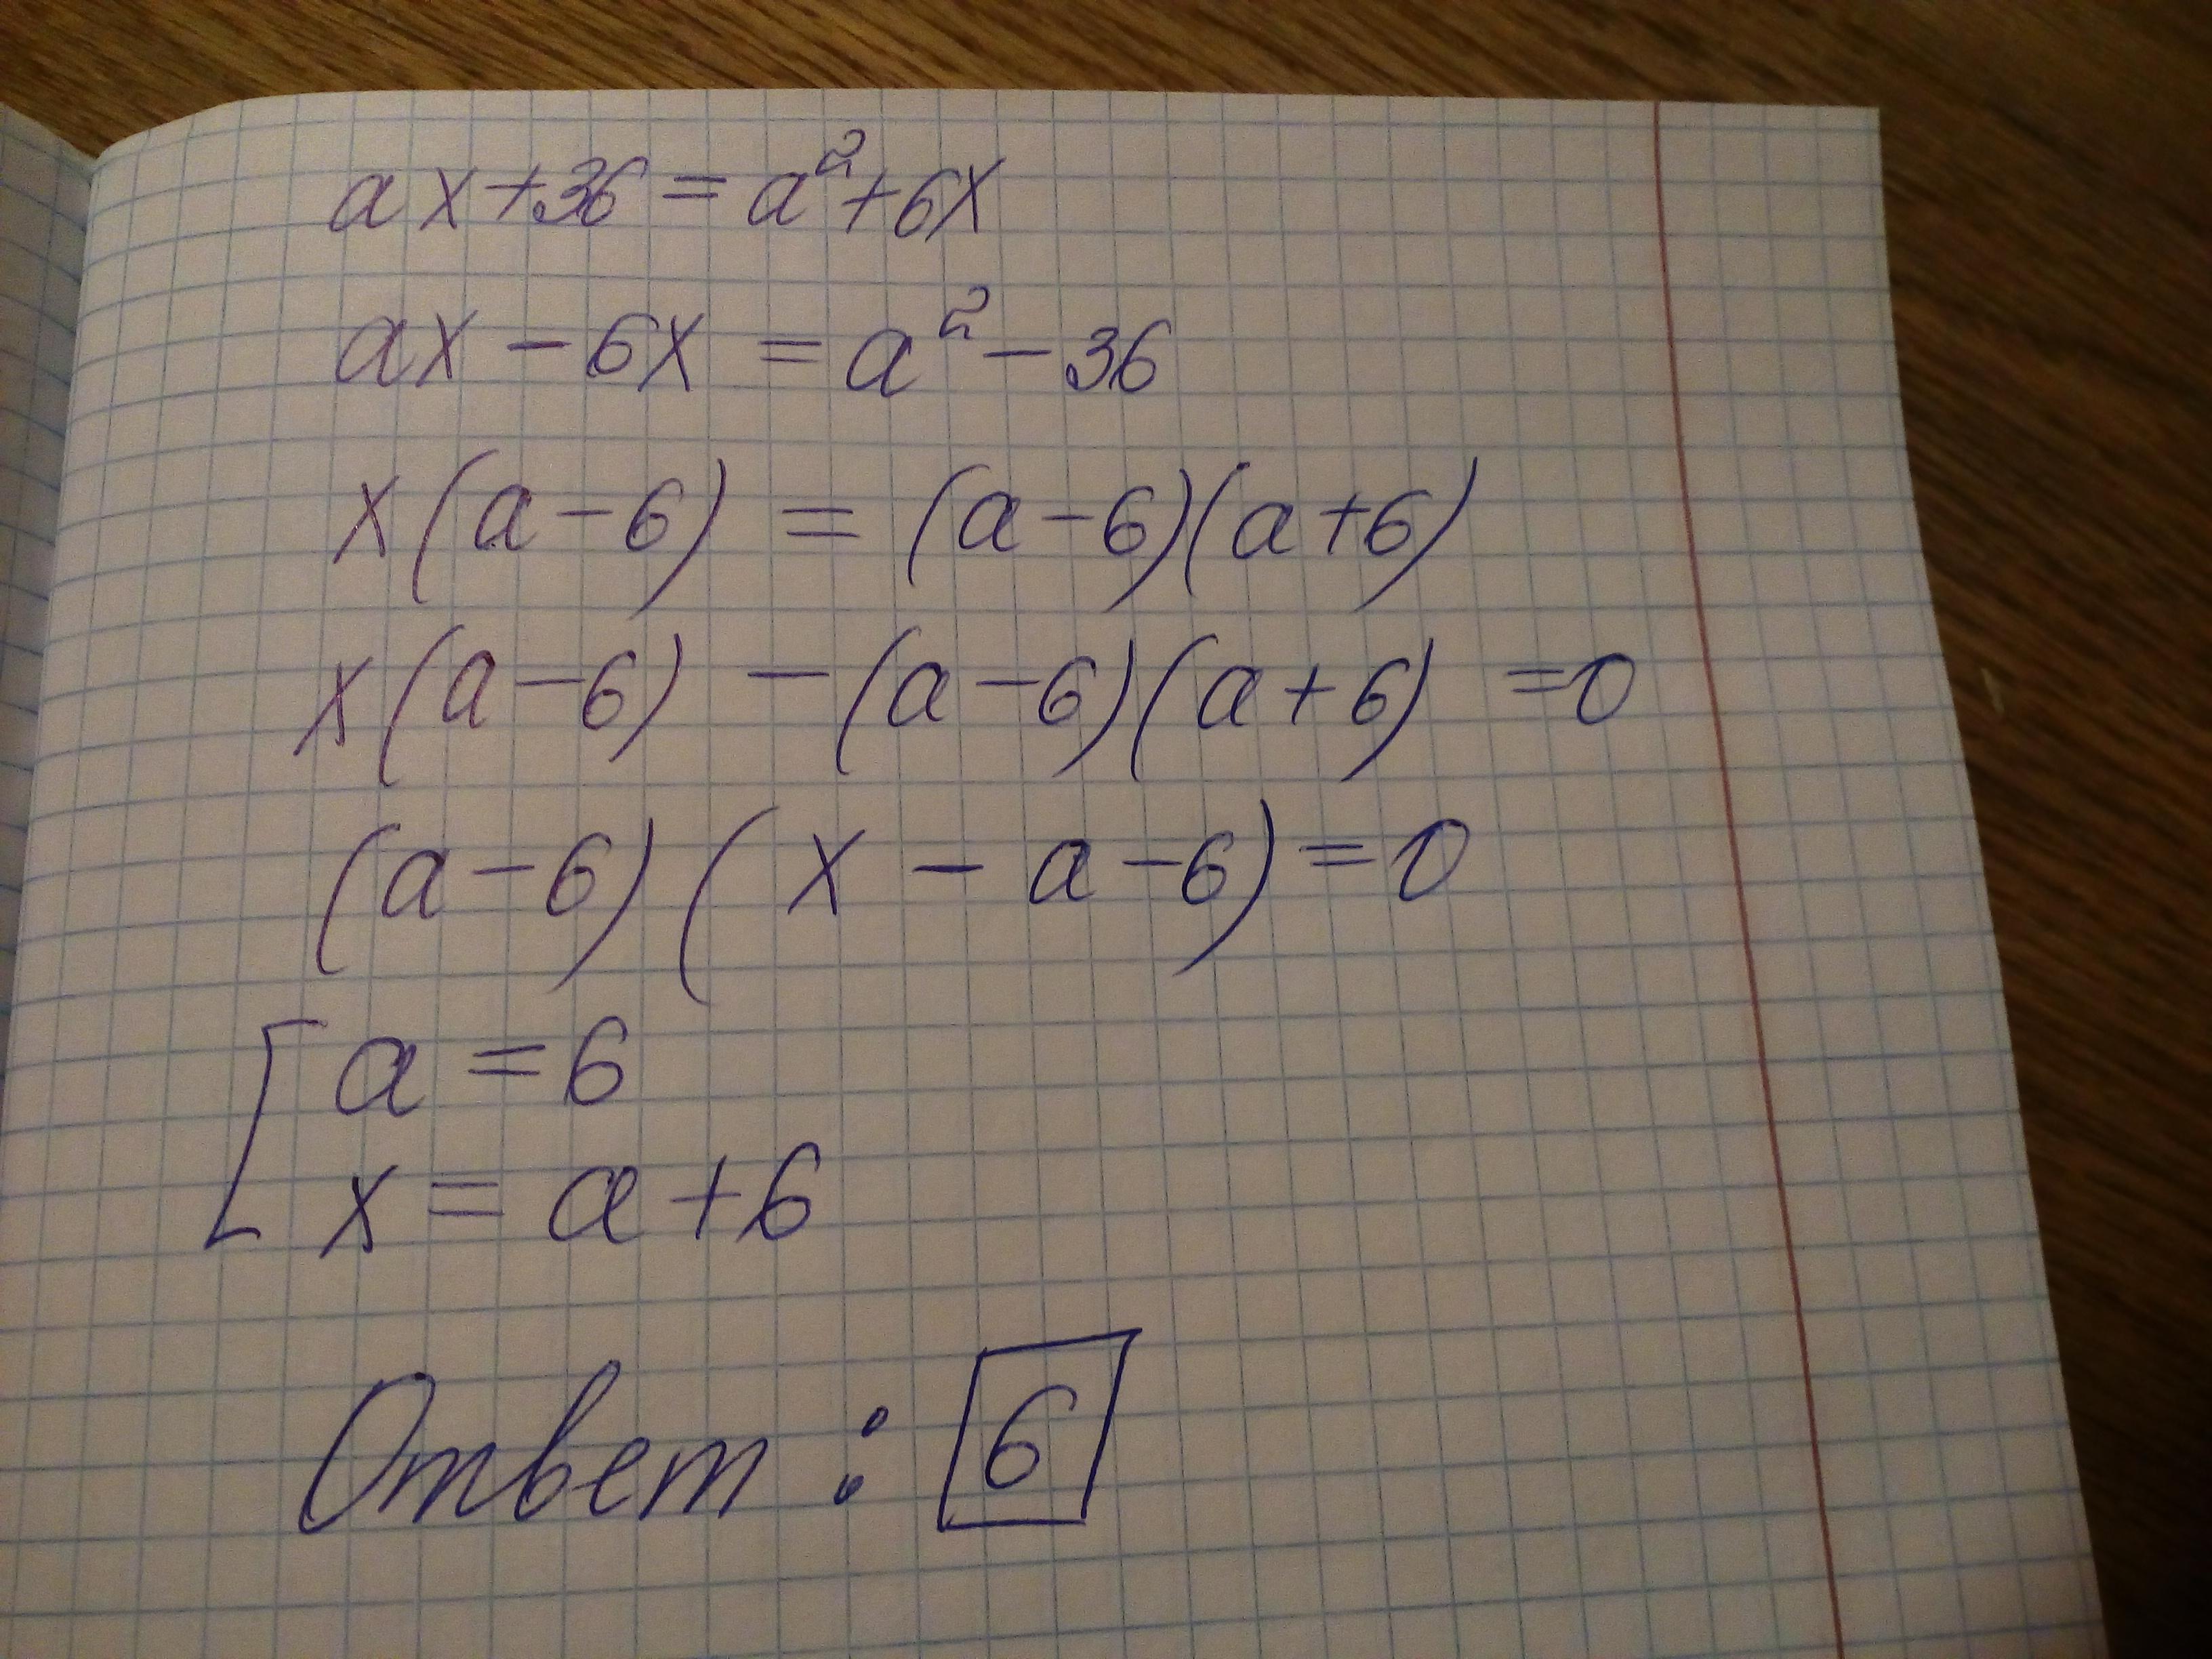 ax+36=a²+6x
ax-6x=a²-36
x(a-6)=(a-6)(a+6)
x(a-6)-(a-6)(a+6)=0
(a-6)(x-a-6)=0
[a=6
x=a+6
Ответ: 6